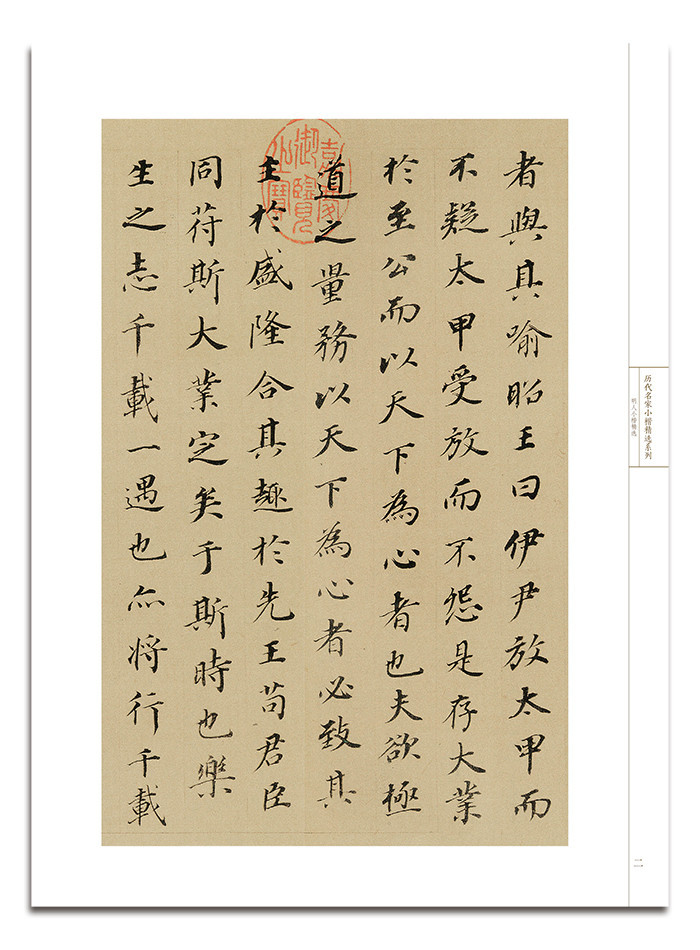 者與其喻昭王曰伊尹放太甲而
不疑太甲受放而不怨是存大業
於至公而以天下為心者也夫欲極
道之量務以天下為心者必致其
主於盛隆合其趣於先王苟君臣
同符斯大業定矣于斯時也樂
生之志千載一遇也亦將行千載
历代名家小楷精选系列
明人小楷精选
二